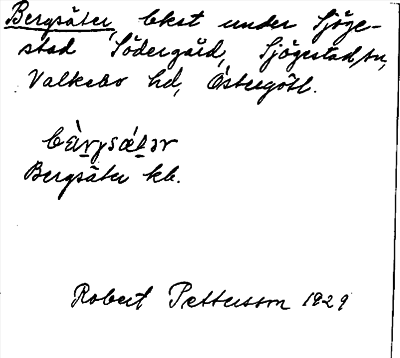 Bergsäter, lkst under Sjöge-
stad Södergård, Sjögestad, sn,
Valkebo hd, Östergötl.
Bergsäter kb.
Robert Pettersson 1929